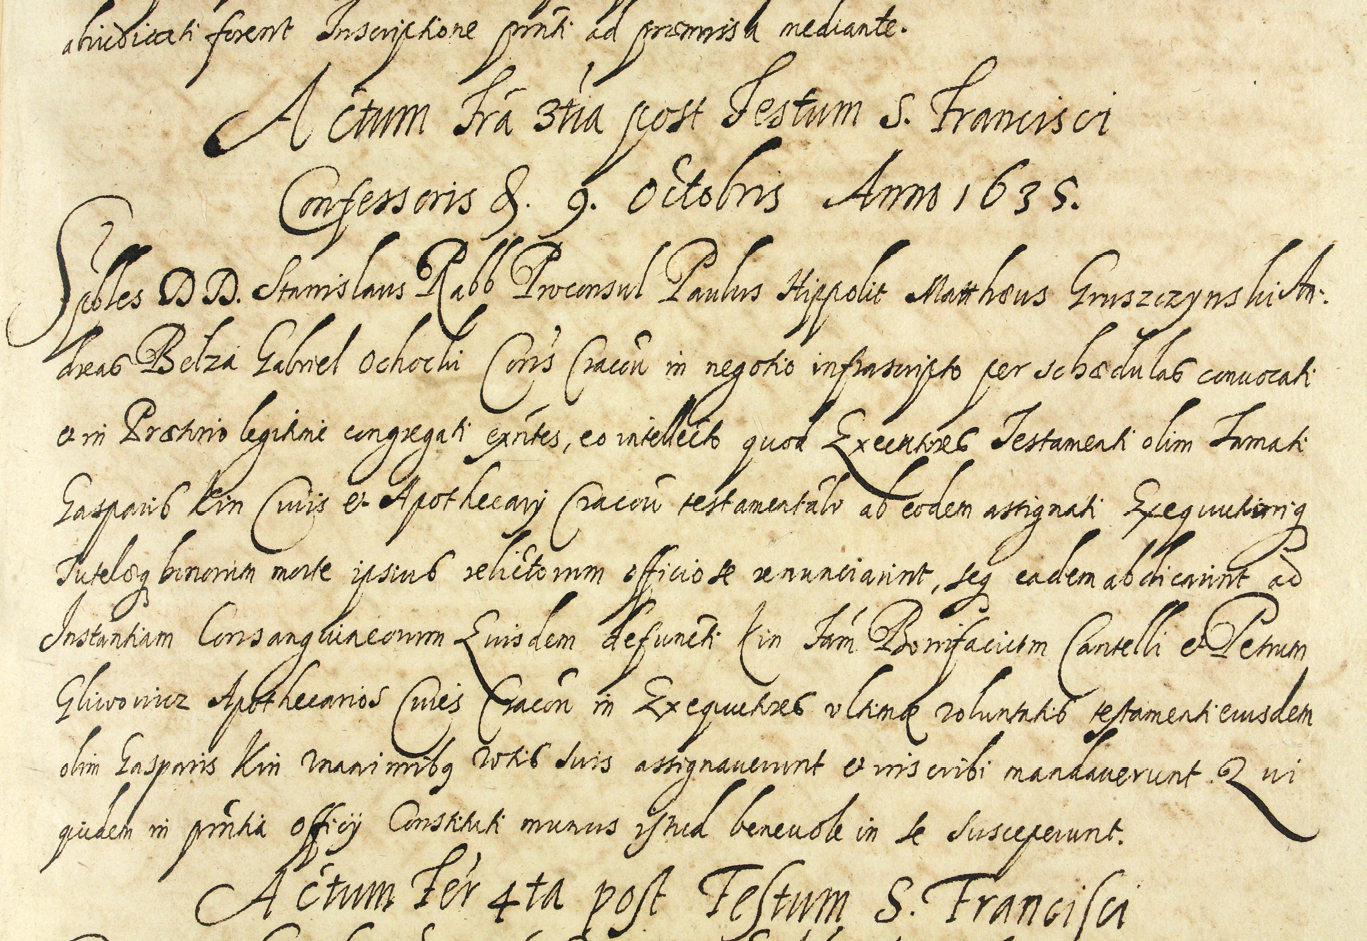 abiudicati forent Inscriptione pñti ad præmissa mediante.
Actum Fra 3tia post Festum S. Francisci
Confessoris &. 9. Octobris Anno 1635.
Spbles DD. Stanislaus Rabb Proconsul Paulus Hippolit Matthæus Gruszczynski An:
dreas Belza Gabriel Ochocki Con's Cracoñ in negotio infrascripto per schædulas conuocati
et in Prætorio legitime congregati exñtes, eo intellecto quod Executores Testamenti olim Famati
Gasparis Kin Ciuis et Apothecarij Cracoñ ab eodem assignati Exequutioniq
Tutelæq bonorum morte ipsius relictorum officiose renunciarint, seq eadem abdicarint ad
Instantiam Consanguineorum Eiusdem defuncti Kin Fam Bonifacium Cantelli et Petrum
Gliwowicz Apothecarios Ciues Cracoñ in Exequutores vltimæ voluntatis testamenti eiusdem
olim Gasparis Kin vnanimibq votis suis assignauerunt et inscribi mandauerunt Qui
quidem in pñtia officij Constituti munus istud beneuole in se susceperunt.
Actum Fer 4ta post Festum S. Francisci